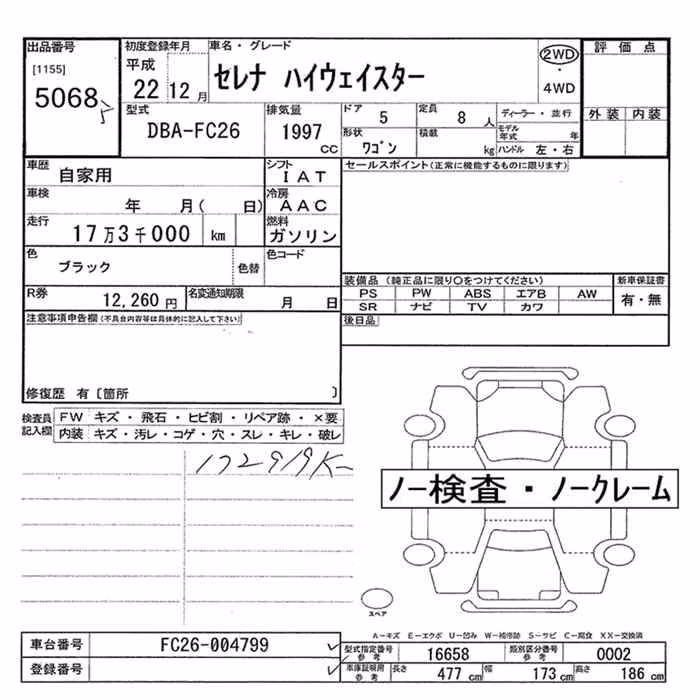 出品番号
[1155]
5068
初度登録年月
平成
22 12月
車名・グレード
セレナ ハイウェイスター
2WD
・
4WD
評価点
外装 内装
型式
DBA-FC26
排気量
1997
cc
ドア 5
定員 8 人
形状 ワゴン
積載 kg
ディーラー・並行
モデル年式 年
ハンドル 左・右
車歴
自家用
シフト
IAT
セールスポイント(正常に機能するものに限ります)
車検
年 月( 日)
冷房
AAC
走行
17万3千000 km
燃料
ガソリン
色
ブラック
色替
色コード
R券
12,260円
名変通知期限
月 日
装備品(純正品に限り○をつけてください)
新車保証書
PS PW ABS エアB AW
SR ナビ TV カワ
有・無
注意事項申告欄(不具合内容等は具体的に記入して下さい)
後日品
修復歴 有〔箇所 〕
検査員記入欄
FW キズ・飛石・ヒビ割・リペア跡・×要
内装 キズ・汚レ・コゲ・穴・スレ・キレ・破レ
172919K-
ノー検査・ノークレーム
スペア
A-キズ E-エクボ U-凹み W-補修跡 S-サビ C-腐食 XX-交換済
車台番号 FC26-004799
登録番号
型式指定番号 参考 16658
類別区分番号 参考 0002
車庫証明用 参考
長さ 477 cm
幅 173 cm
高さ 186 cm